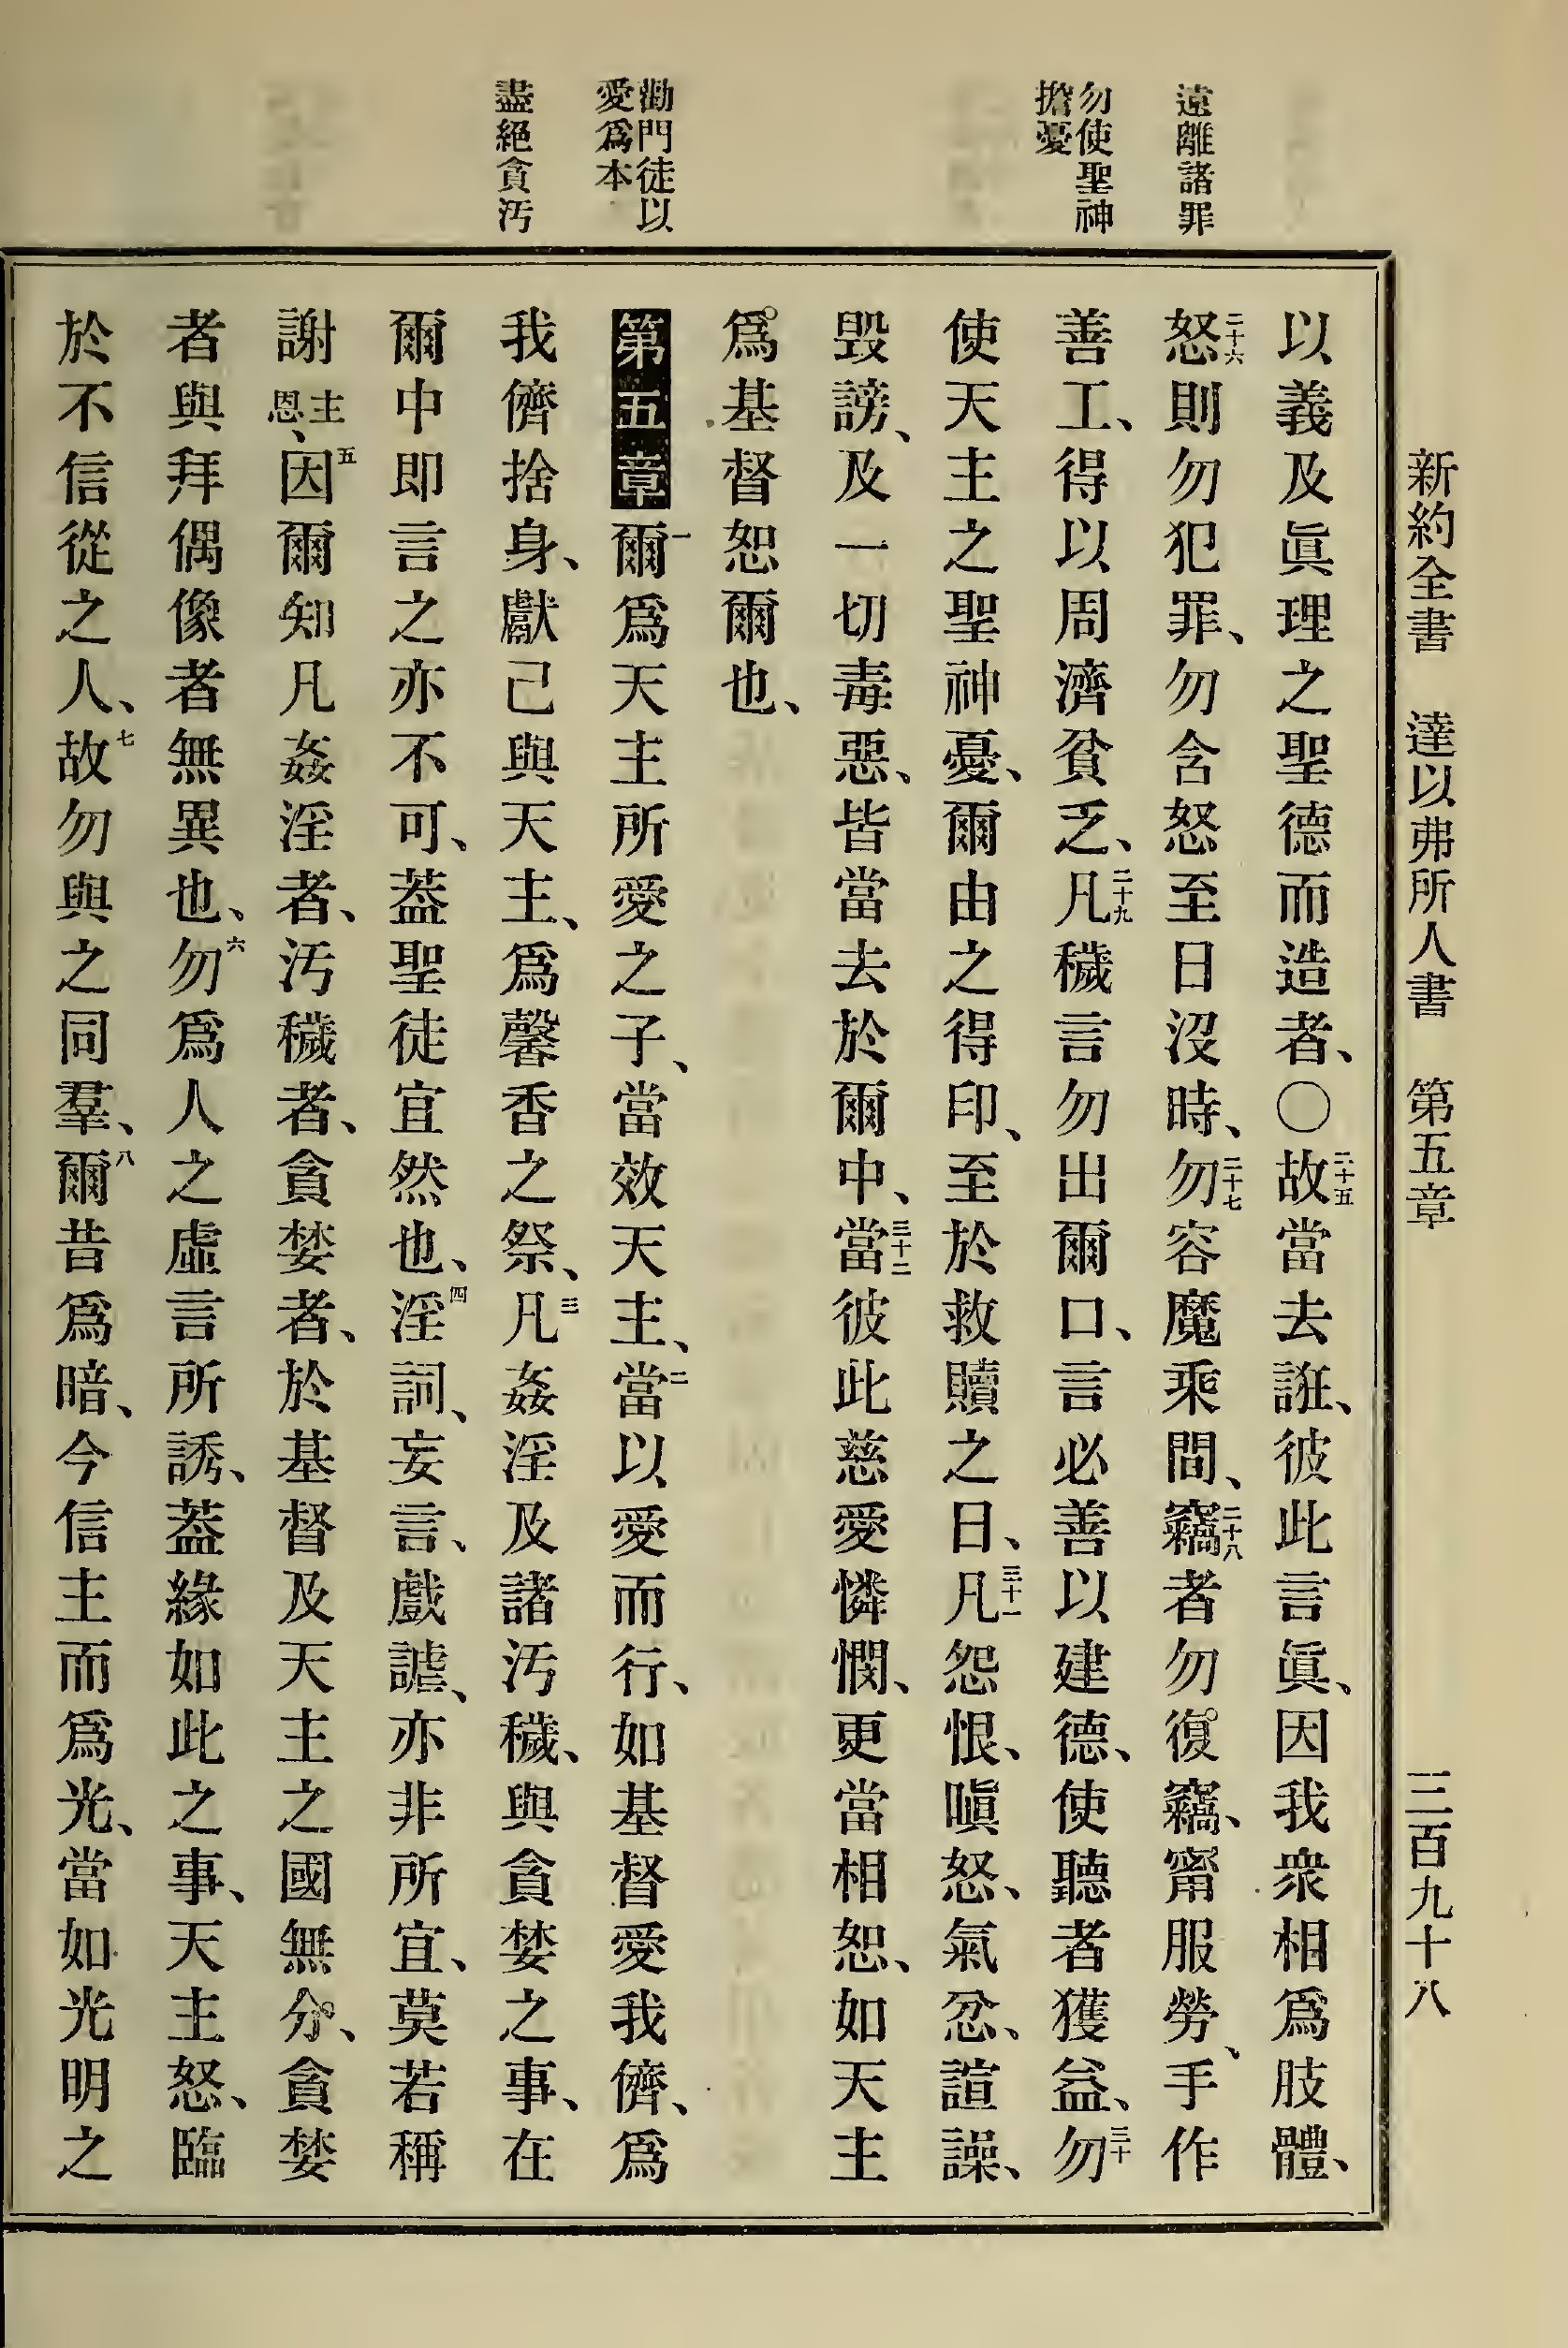 新約全書　達以弗所人書　第五章　三百九十八
遠離諸罪
勿使聖神
擔憂
勸門徒以
愛爲本
盡絕貪汚
以義及眞理之聖德而造者、〇二十五故當去誑、彼此言眞、因我衆相爲肢體、
二十六怒則勿犯罪、勿含怒至日沒時、二十七勿容魔乘間、二十八竊者勿復竊、甯服勞、手作
善工、得以周濟貧乏、二十九凡穢言勿出爾口、言必善以建德、使聽者獲益、三十勿
使天主之聖神憂、爾由之得印、至於救贖之日、三十一凡怨恨、嗔怒、氣忿、諠譟、
毀謗、及一切毒惡、皆當去於爾中、三十二當彼此慈愛憐憫、更當相恕、如天主
爲基督恕爾也、
第五章　一爾爲天主所愛之子、當效天主、二當以愛而行、如基督愛我儕、爲
我儕捨身、獻己與天主、爲馨香之祭、三凡姦淫及諸汚穢、與貪婪之事、在
爾中即言之亦不可、葢聖徒宜然也、四淫詞、妄言、戲謔、亦非所宜、莫若稱
謝主恩、五因爾知凡姦淫者、汚穢者、貪婪者、於基督及天主之國無分、貪婪
者與拜偶像者無異也、六勿爲人之虛言所誘、葢緣如此之事、天主怒、臨
於不信從之人、七故勿與之同羣、八爾昔爲暗、今信主而爲光、當如光明之